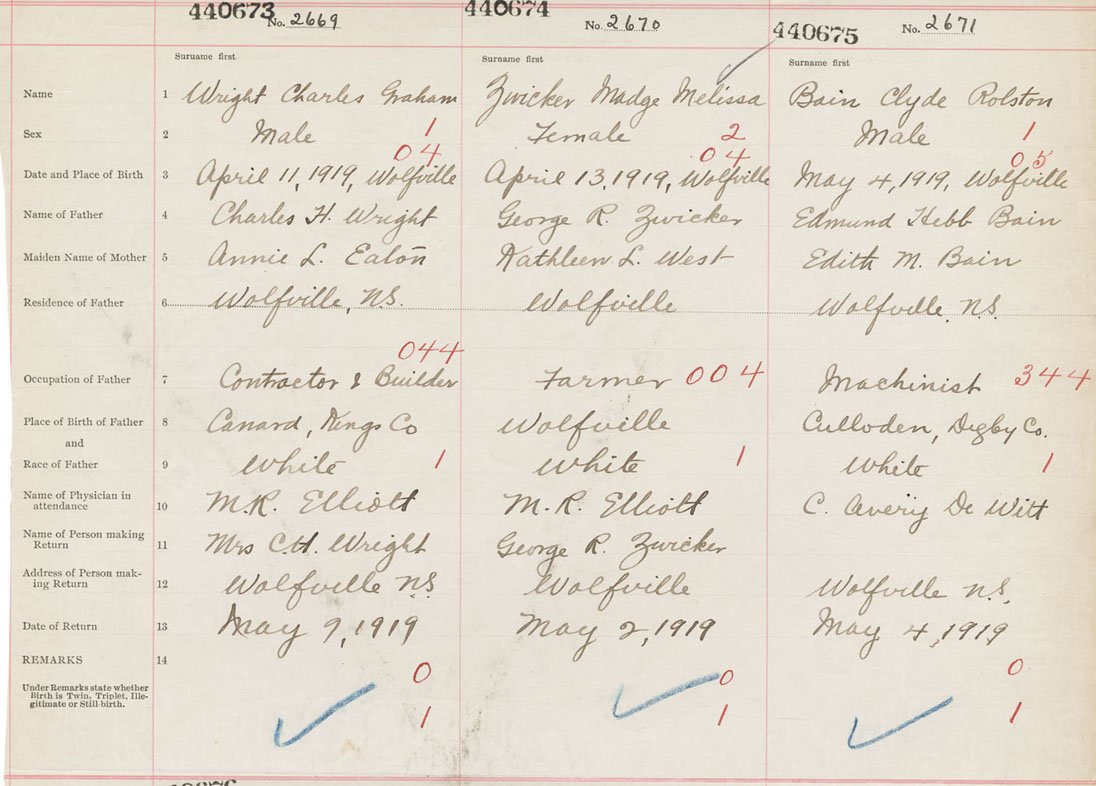 440673 No. 2669 440674 No. 2670 440675 No. 2671
Surname first Surname first Surname first
Name 1 Wright Charles Graham Zwicker Madge Melissa Bain Clyde Rolston
Sex 2 Male 1 Female 2 Male 1
04 04 05
Date and Place of Birth 3 April 11, 1919, Wolfville April 13, 1919, Wolfville May 4, 1919, Wolfville
Name of Father 4 Charles H. Wright George R. Zwicker Edmund Hebb Bain
Maiden Name of Mother 5 Annie L. Eaton Kathleen L. West Edith M. Bain
Residence of Father 6 Wolfville, N.S. Wolfville Wolfville, N.S.
044
Occupation of Father 7 Contractor & Builder Farmer 004 Machinist 344
Place of Birth of Father 8 Canard, Kings Co Wolfville Culloden, Digby Co.
and
Race of Father 9 White 1 White 1 White 1
Name of Physician in
attendance 10 M.R. Elliott M. R. Elliott C. Avery De Witt
Name of Person making
Return 11 Mrs C.H. Wright George R. Zwicker
Address of Person mak-
ing Return 12 Wolfville N.S. Wolfville Wolfville N.S.
Date of Return 13 May 9, 1919 May 2, 1919 May 4, 1919
REMARKS 14
0 0 0
Under Remarks state whether
Birth is Twin, Triplet, Ille-
gitimate or Still-birth.
1 1 1